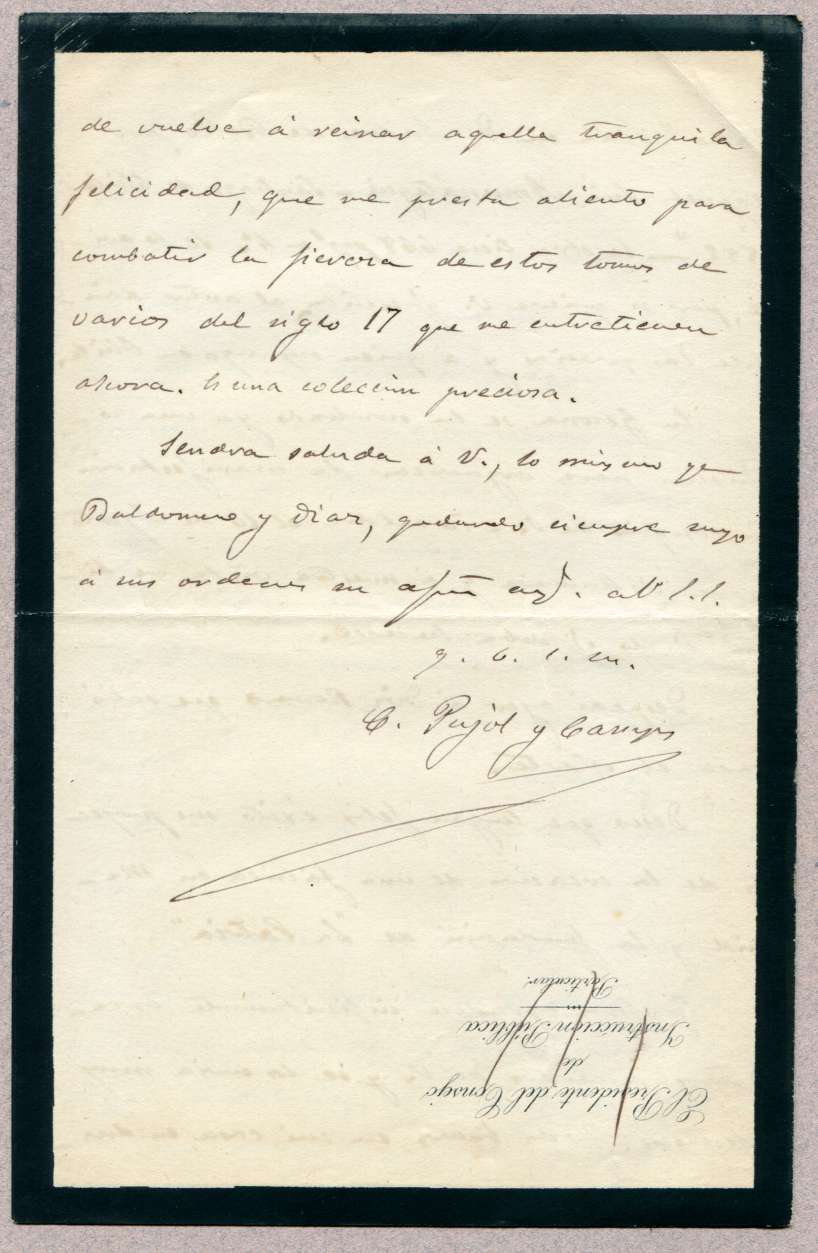 de vuelve á reinar aquella tranquila
felicidad, que me presta aliento para
combatir la fiereza de estos tomos de
varios del siglo 17 que me entretienen
ahora. Es una coleccion preciosa.
Sendra saluda á V., lo mismo que
Baldomero y Diaz, quedando siempre suyo
á sus ordenes su afmo
q. b. s. m.
C. Pujol y Camps
El Presidente del Consejo
de
Instrucción Pública
Particular.